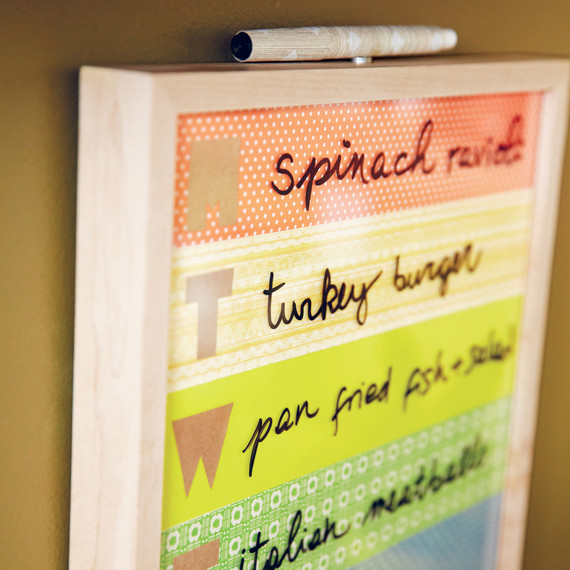 M spinach ravioli
T turkey burger
W pan fried fish + salad
T italian meatballs